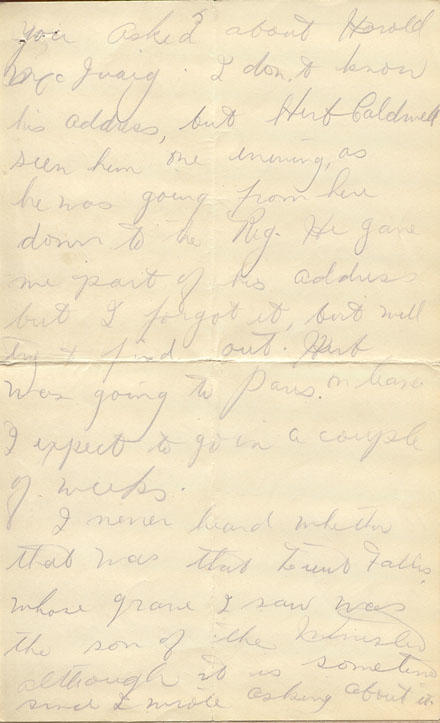 you asked about Harold
I don,t know
his address, but Herb Caldwell
seen him one evening, as
he was going from here
down to the Reg. He gave
me part of his address
but I forgot it, but will
try & find out. Herb
was going to Paris. on leave
I expect to go in a couple
of weeks.
I never heard whether
that was that Lieut Fallis
whose grave I saw was
the son of the Minister
although it is sometime
since I wrote asking about it.